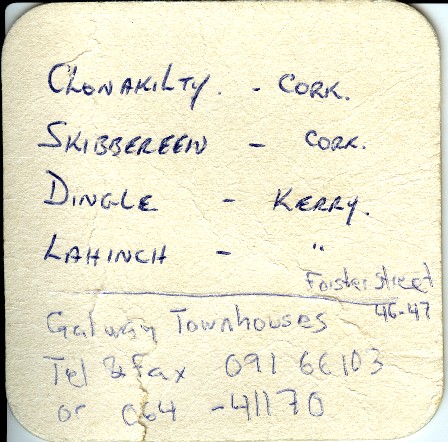 CLONAKILTY. - CORK.
SKIBBEREEN - CORK.
DINGLE - KERRY.
LAHINCH - "
Forster street
46-47
Galway Townhouses
Tel & fax 091 66103
or 064 -41170